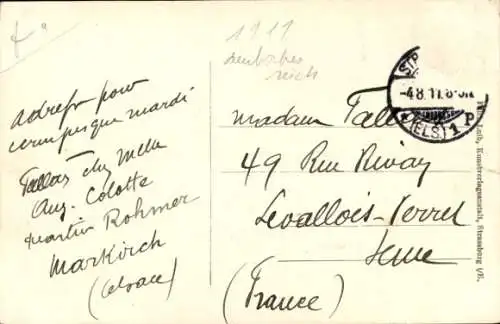 1911
adresse pour
mardi
Tallas chez Melle
Aug. Colotte
quartier Rohmer
Markirch
(Alsace)
Madame
49 Rue Rivay
Levallois-Perret
Seine
(France)
STR
-4.8.11.8-9N.
* (ELS.) 1 P
Kunstverlagsanstalt, Strassburg i/E.